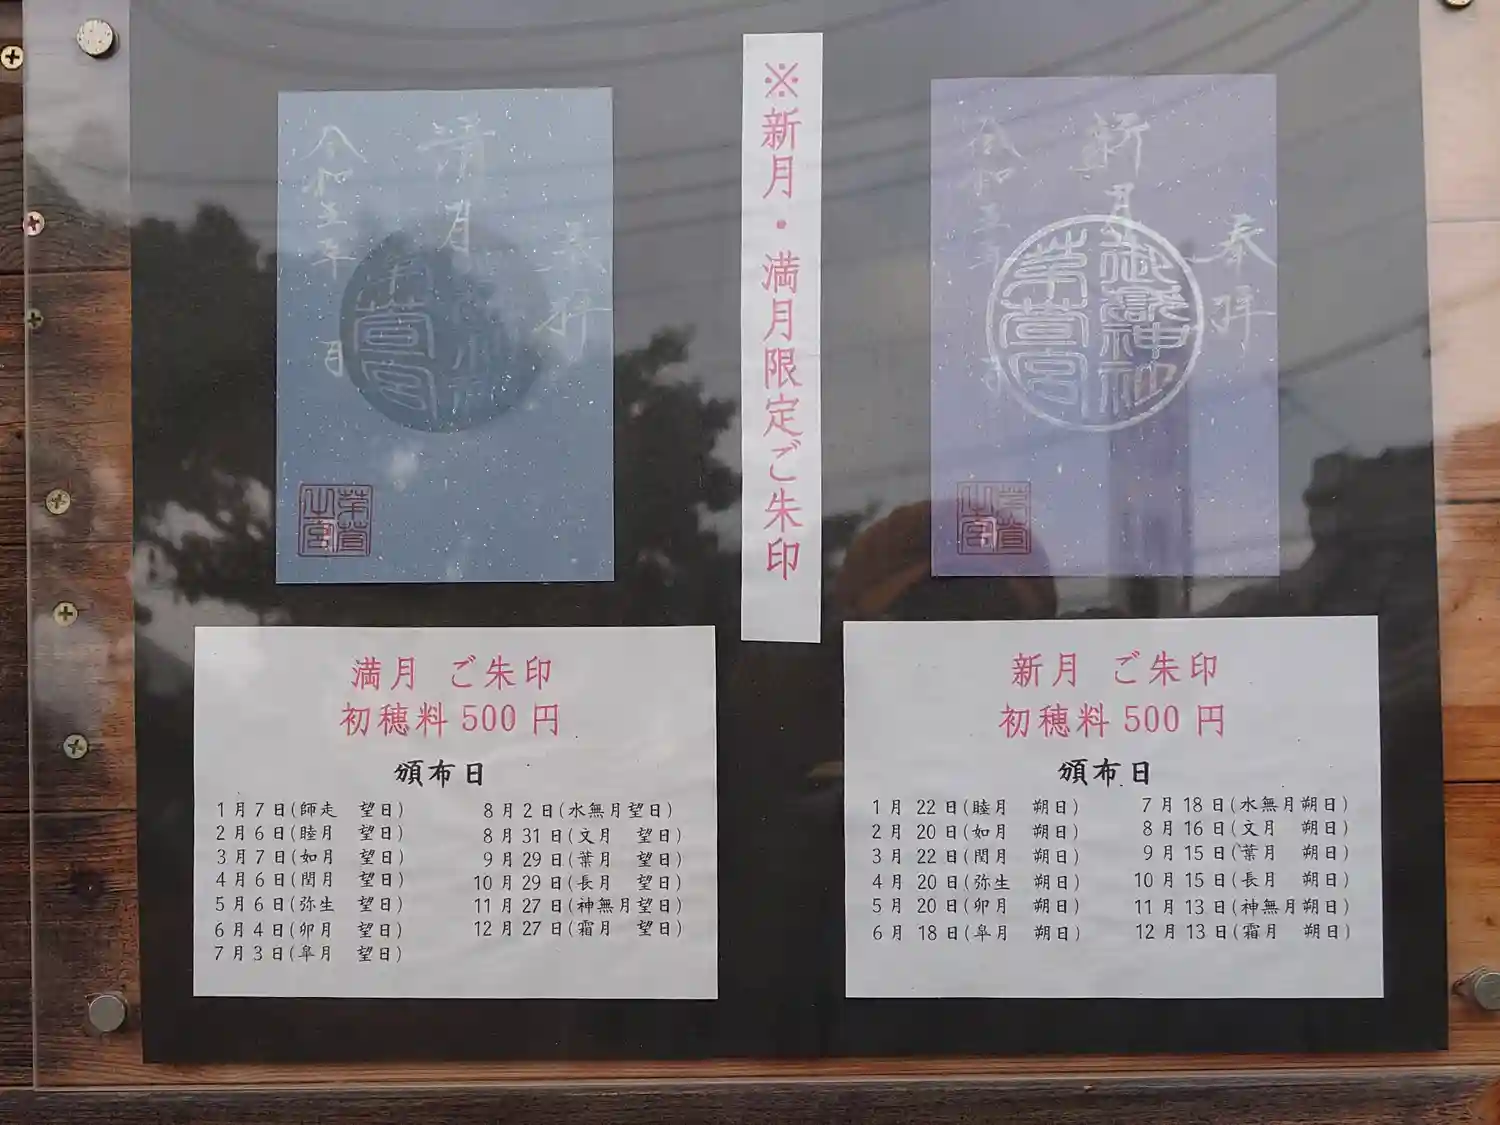 ※新月・満月限定ご朱印
奉拝
満月
令和五年
月
茅萱宮
奉拝
新月
令和五年
月
御嶽神社
茅萱宮
満月 ご朱印
初穂料500円
頒布日
1月7日(師走 望日)
2月6日(睦月 望日)
3月7日(如月 望日)
4月6日(閏月 望日)
5月6日(弥生 望日)
6月4日(卯月 望日)
7月3日(皐月 望日)
8月2日(水無月望日)
8月31日(文月 望日)
9月29日(葉月 望日)
10月29日(長月 望日)
11月27日(神無月望日)
12月27日(霜月 望日)
新月 ご朱印
初穂料500円
頒布日
1月22日(睦月 朔日)
2月20日(如月 朔日)
3月22日(閏月 朔日)
4月20日(弥生 朔日)
5月20日(卯月 朔日)
6月18日(皐月 朔日)
7月18日(水無月朔日)
8月16日(文月 朔日)
9月15日(葉月 朔日)
10月15日(長月 朔日)
11月13日(神無月朔日)
12月13日(霜月 朔日)